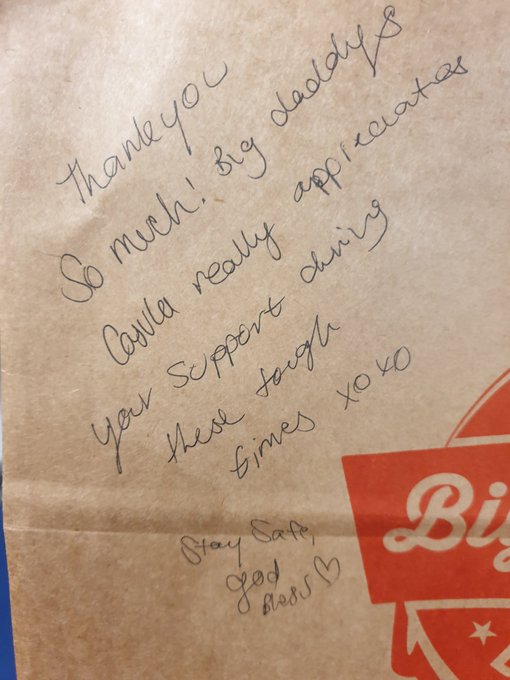 Thank you
So much! Big daddys
Casula really appreciates
your support during
these tough
times xoxo
Stay Safe,
god
Bless ♡
Bi